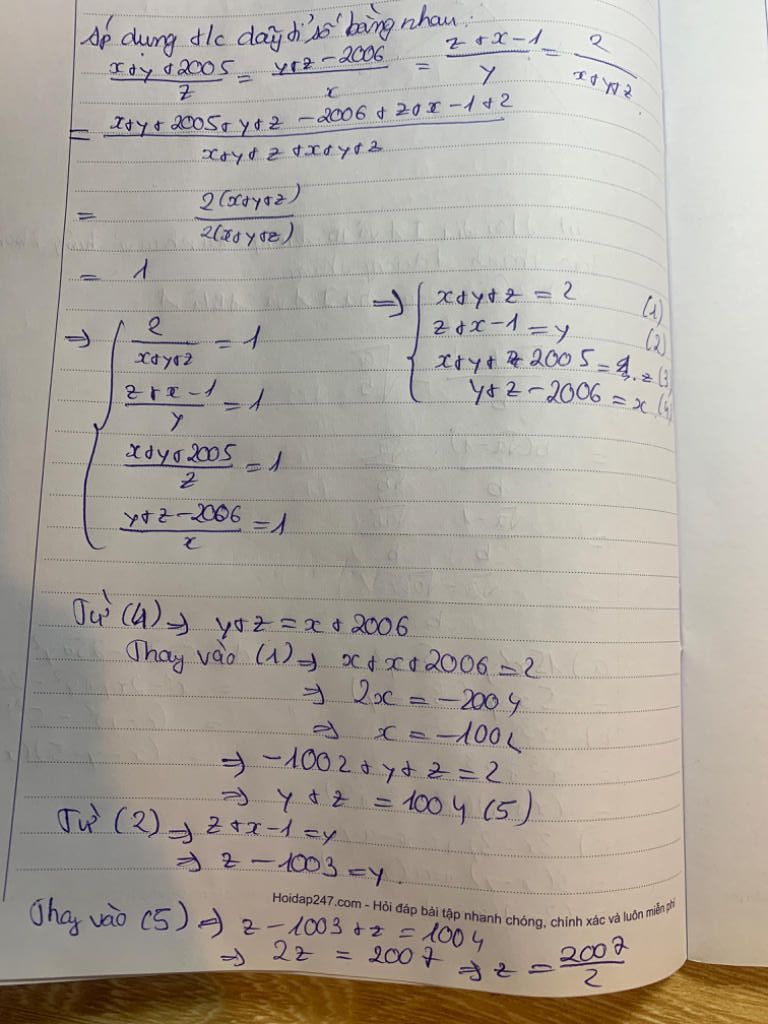 Áp dụng t/c dãy tỉ số bằng nhau:
(x+y+2005)/z = (y+z-2006)/x = (z+x-1)/y = 2/(x+y+z)
= (x+y+2005+y+z-2006+z+x-1+2)/(x+y+z+x+y+z)
= 2(x+y+z)/2(x+y+z)
= 1
=> { 2/(x+y+z) = 1
(z+x-1)/y = 1
(x+y+2005)/z = 1
(y+z-2006)/x = 1
=> { x+y+z = 2 (1)
z+x-1 = y (2)
x+y+2005 = z (3)
y+z-2006 = x (4)
Từ (4) => y+z = x+2006
Thay vào (1) => x+x+2006 = 2
=> 2x = -2004
=> x = -1002
=> -1002+y+z = 2
=> y+z = 1004 (5)
Từ (2) => z+x-1 = y
=> z-1003 = y.
Hoidap247.com - Hỏi đáp bài tập nhanh chóng, chính xác và luôn miễn phí
Thay vào (5) => z-1003+z = 1004
=> 2z = 2007 => z = 2007/2